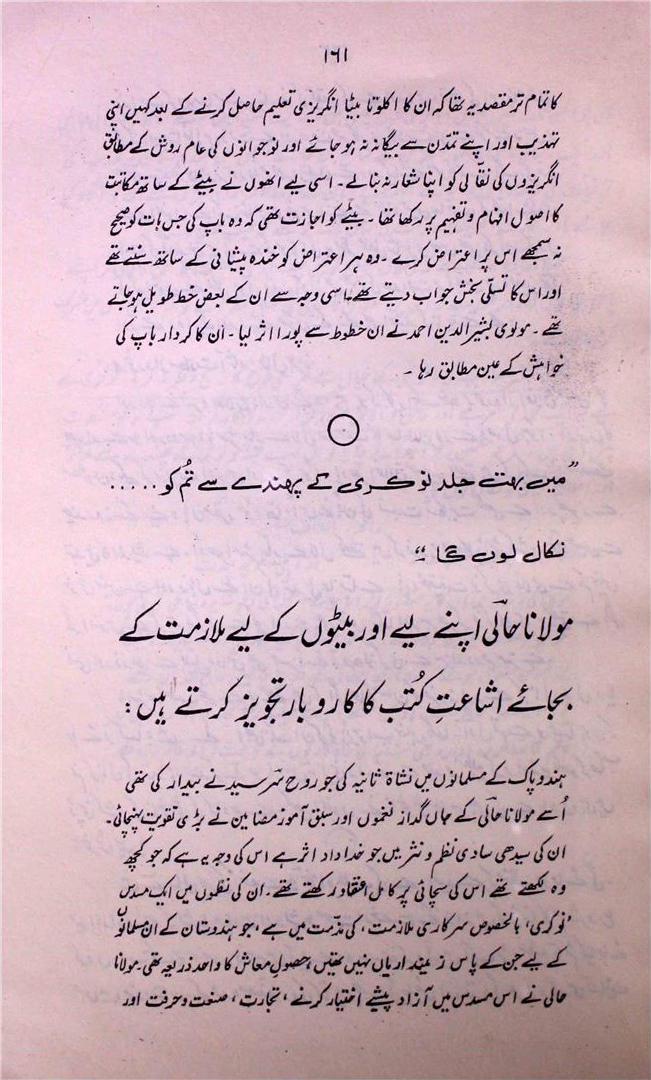 ۱۶۱
کا تمام تر مقصد یہ تھا کہ ان کا اکلوتا بیٹا انگریزی تعلیم حاصل کرنے کے بعد کہیں اپنی
تہذیب اور اپنے تمدّن سے بیگانہ نہ ہو جائے اور نوجوانوں کی عام روش کے مطابق
انگریزوں کی نقّالی کو اپنا شعار نہ بنالے۔ اسی لیے انھوں نے بیٹے کے ساتھ مکاتبت
کا اصول افہام و تفہیم پر رکھا تھا۔ بیٹے کو اجازت تھی کہ وہ باپ کی جس بات کو صحیح
نہ سمجھے اس پر اعتراض کرے۔ وہ ہر اعتراض کو خندہ پیشانی کے ساتھ سنتے تھے
اور اس کا تسلّی بخش جواب دیتے تھے۔ اسی وجہ سے ان کے بعض خط طویل ہو جاتے
تھے۔ مولوی بشیر الدین احمد نے ان خطوط سے پورا اثر لیا۔ ان کا کردار باپ کی
خواہش کے عین مطابق رہا۔
"میں بہت جلد نوکری کے پھندے سے تُم کو.....
نکال لوں گا"
مولانا حالیؔ اپنے لیے اور بیٹوں کے لیے ملازمت کے
بجائے اشاعتِ کُتب کا کاروبار تجویز کرتے ہیں:
ہند و پاک کے مسلمانوں میں نشاۃ ثانیہ کی جو روح سرسید نے بیدار کی تھی
اُسے مولانا حالیؔ کے جاں گداز نغموں اور سبق آموز مضامین نے بڑی تقویت پہنچائی۔
ان کی سیدھی سادی نظم و نثر میں جو خداداد اثر ہے اس کی وجہ یہ ہے کہ جو کچھ
وہ لکھتے تھے اس کی سچائی پر کامل اعتقاد رکھتے تھے۔ ان کی نظموں میں ایک مسدس
'نوکری، بالخصوص سرکاری ملازمت، کی مذمت میں ہے، جو ہندوستان کے ان مسلمانوں
کے لیے جن کے پاس زمینداریاں نہیں تھیں، حصولِ معاش کا واحد ذریعہ تھی۔ مولانا
حالی نے اس مسدس میں آزاد پیشے اختیار کرنے، تجارت، صنعت و حرفت اور